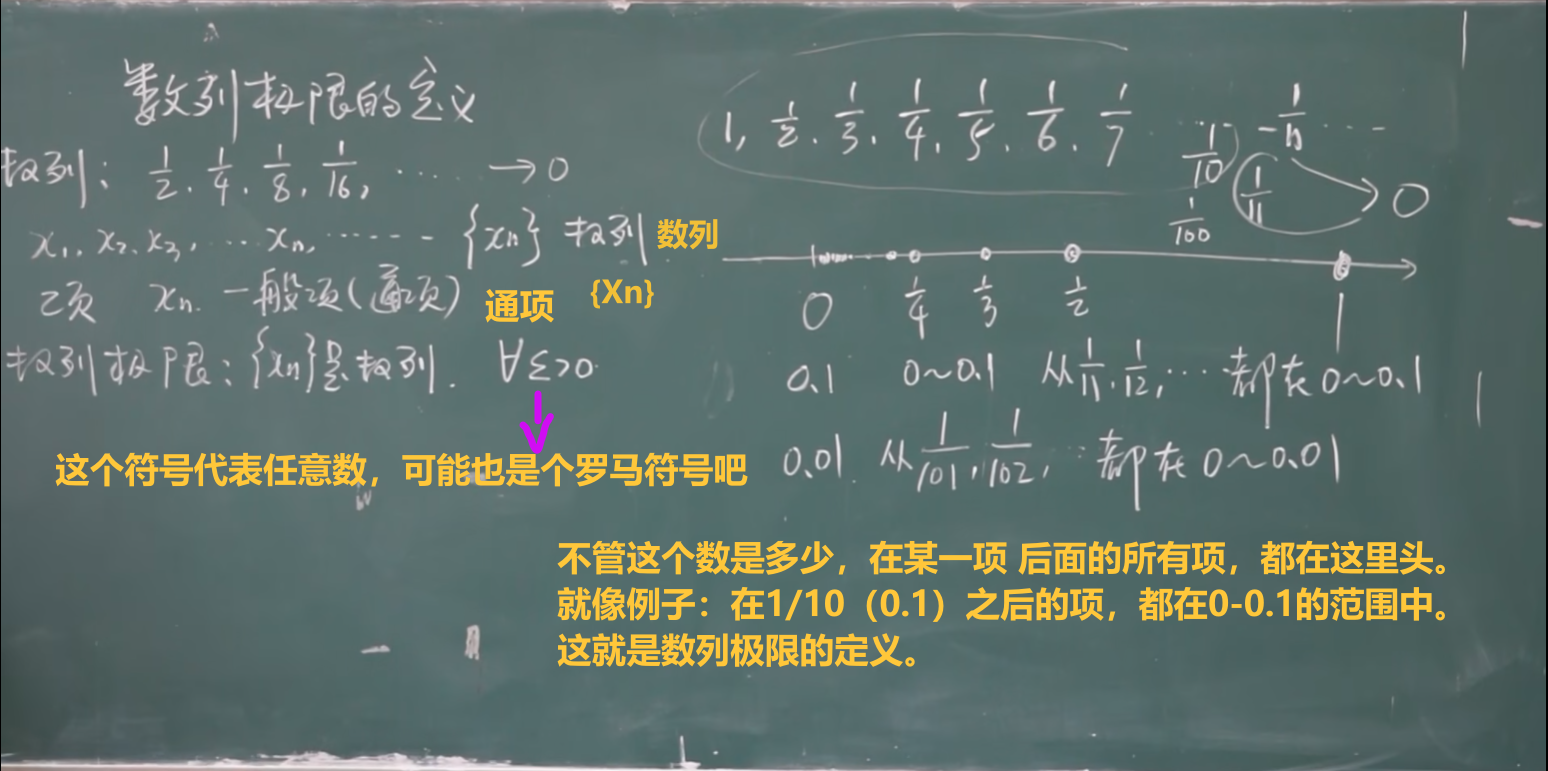 数列极限的定义
数列: 1/2, 1/4, 1/8, 1/16, ····· →0
x₁, x₂, x₃, ··· xₙ, ······ {xₙ} 数列 数列
项 xₙ. 一般项(通项) 通项 {Xn}
数列极限: {xₙ}是数列. ∀ε>0
这个符号代表任意数，可能也是个罗马符号吧
1, 1/2, 1/3, 1/4, 1/5, 1/6, 1/7 ···· 1/10 1/n ···
1/11 → 0
1/100
0 1/4 1/3 1/2 1
0.1 0~0.1 从1/11, 1/12, ··· 都在0~0.1
0.01 从1/101, 1/102, ··· 都在0~0.01
不管这个数是多少，在某一项 后面的所有项，都在这里头。
就像例子：在1/10（0.1）之后的项，都在0-0.1的范围中。
这就是数列极限的定义。